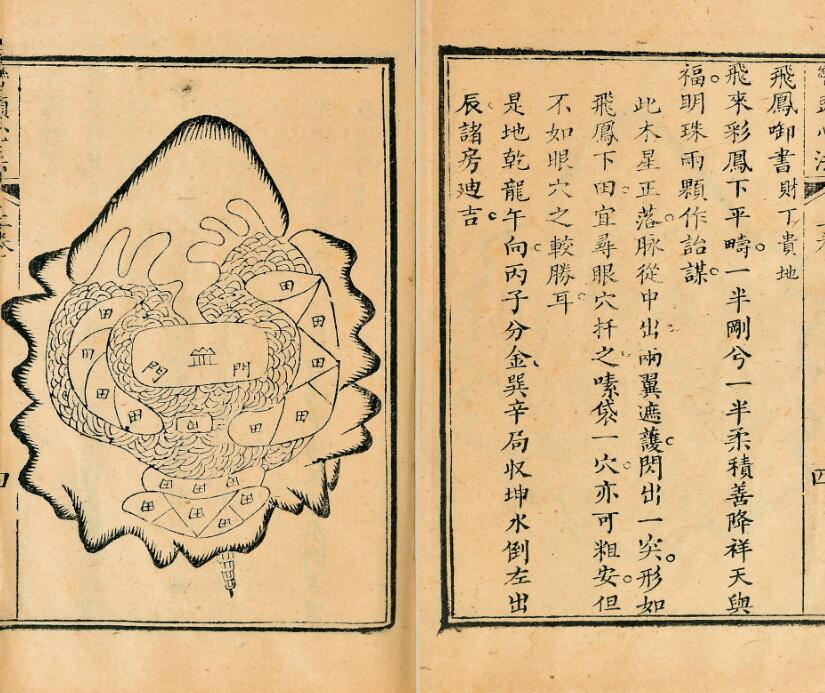 飛鳳御書財丁貴地
飛來彩鳳下平疇。一半剛兮一半柔積善降祥天與
福。明珠兩顆作詒謀。
此木星正落。脉從中出。兩翼遮護。閃出一突。形如
飛鳳下田。宜尋眼穴扦之。嗉袋一穴。亦可粗安。但
不如眼穴之較勝耳。
是地乾龍午向。丙子分金、巽辛局収坤水倒左出
辰諸房廸吉。
田
田
田
田
田
田
門
門
田
田
田
田
田
山
田
田
田
田
田
田
田